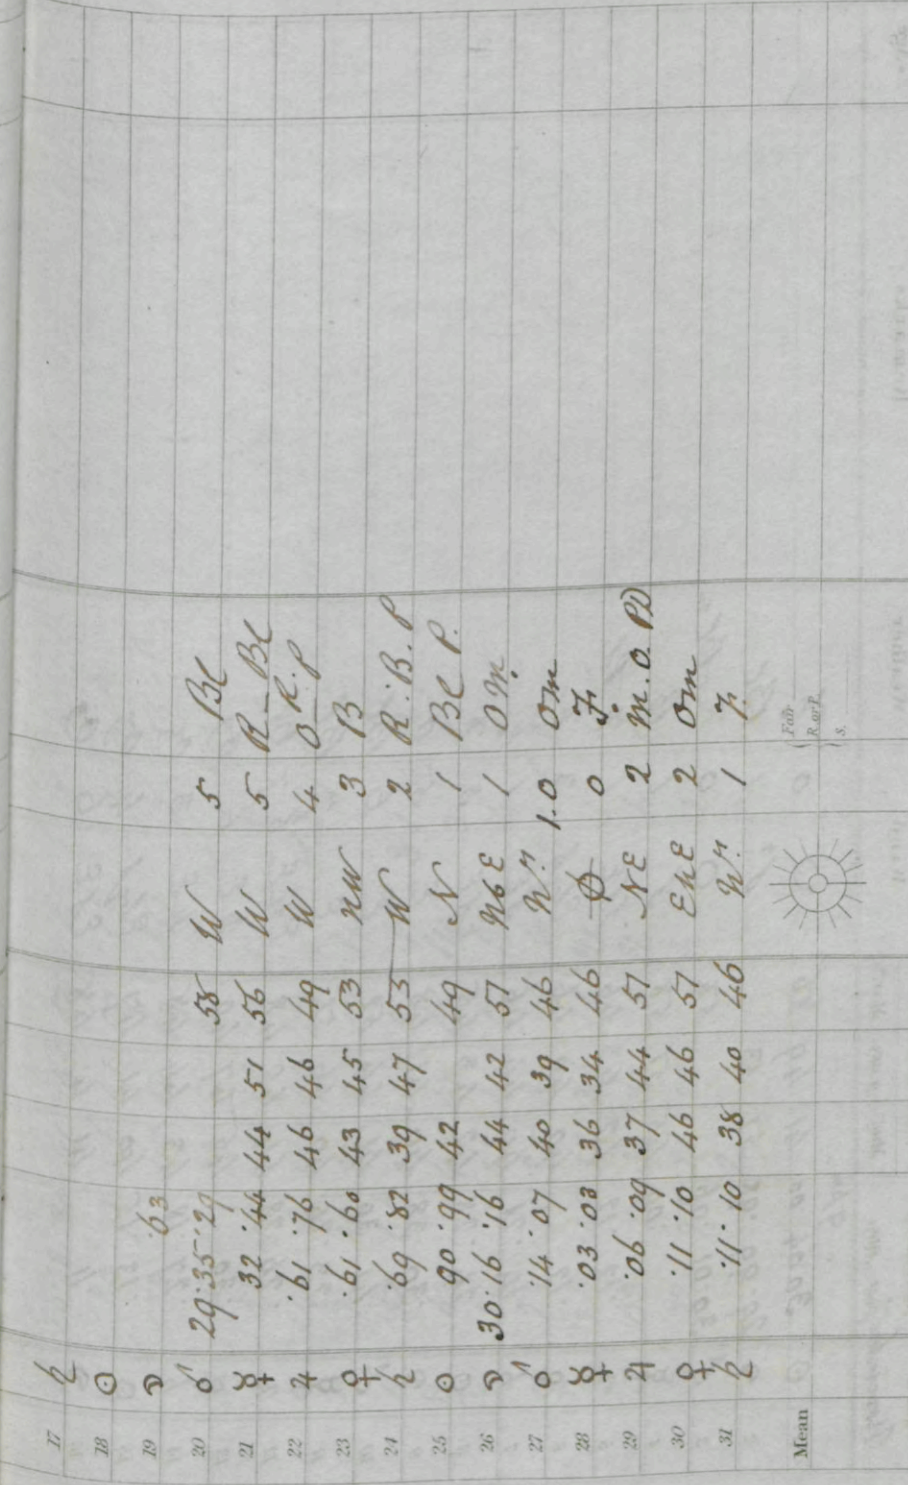 17 ♄
18 ☉
19 ☽ .63
20 ♂ 29.35 .29 58 W 5 Bc
21 ☿ 32 .44 44 51 56 W 5 R_Bc
22 ♃ .61 .76 46 46 49 W 4 O R.P
23 ♀ .61 .60 43 45 53 NW 3 B
24 ♄ .69 .82 39 47 53 W 2 R.B.P
25 ☉ 90 .99 42 49 N 1 Bc P.
26 ☽ 30.16 .16 44 42 51 NbE 1 Om.
27 ♂ .14 .07 40 39 46 N.n 1.0 Om
28 ☿ .03 .03 36 34 46 ϕ 0 F.
29 ♃ .06 .09 37 44 51 NE 2 m.O.PD
30 ♀ .11 .10 46 46 51 ENE 2 Om
31 ♄ .11 .10 38 40 46 N.n 1 F.
Mean Fair
R. or P.
S.